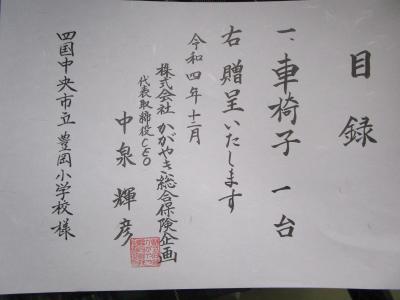 目録
一、車椅子 一台
右 贈呈いたします
令和四年十二月
株式会社 かがやき総合保険企画
代表取締役CEO
中泉 輝彦
四国中央市立 豊岡小学校 様